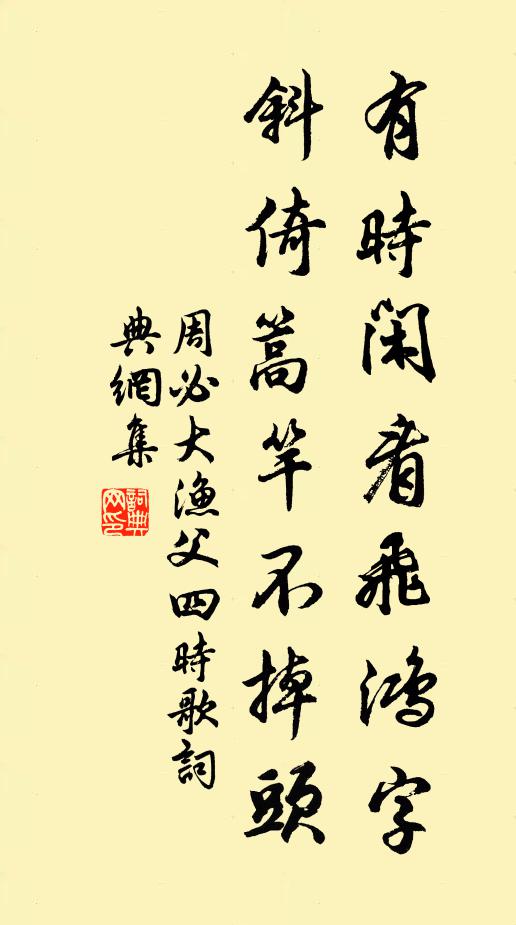 有時閑看飛鴻字
斜倚篙竿不掉頭
周必大漁父四時歌詞
典網集
詞典網印